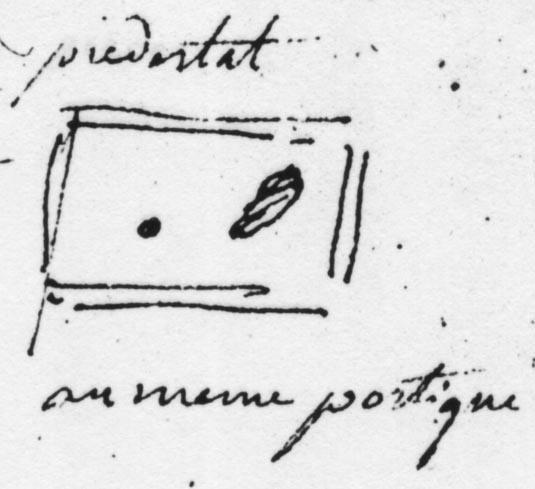 piedestat
au meme portique